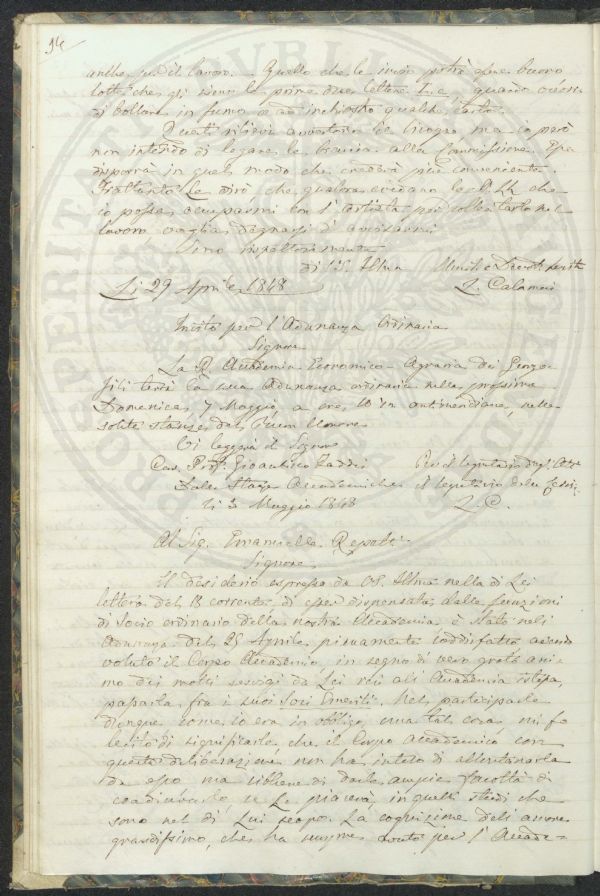 94
anche del lavoro. Quello che le invio potrà esser buono
tosto che gli siano le prime due lettere I. e quando occorre
di bollare in fumo o ad inchiostro qualche carta.
Questi rilievi avvertono il bisogno ma io però
non intendo di legare le braccia alla Commissione. Ella
disporrà in quel modo che crederà più conveniente.
Frattanto Le dirò che qualora credano le LL. che
io possa occuparmi con l'artista per sollecitarlo nel
lavoro voglia degnarsi d'avvisarmi
Sono rispettosamente
di VS. Illma
Li 29 Aprile 1848
L. Calamai
Invito per l'Adunanza Ordinaria
Signore
La R. Accademia Economico-Agraria dei Georgo-
fili terrà la sua Adunanza ordinaria nella prossima
Domenica, 7 Maggio, a ore 10 in antimeridiane, nelle
solite stanze del Buon Umore
Vi leggerà il Signore
Cav. Prof. Gioacchino Taddei
Dalle Stanze Accademiche
li 3 Maggio 1848
Per il Segretario degli Atti
Il Segretario delle
L. C.
Al Sig. Emanuelle Repetti
Signore
Il desiderio espresso da VS. Illma nella di Lei
lettera del 13 corrente di esser dispensata dalle funzioni
di Socio ordinario della nostra Accademia è stato nell'
Adunanza del 25 Aprile pienamente soddisfatto avendo
voluto il Corpo Accademico, in segno di vero grato ani-
mo dei molti servigi da Lei resi all'Accademia istessa,
passarla fra i suoi Soci Emeriti. Nel parteciparle
dunque come io era in obbligo, una tal cosa, mi fo
lecito di significarle che il Corpo accademico con
questa deliberazione non ha inteso di allontanarla
da esso ma sibbene di darle ampia facoltà di
coadiuvarlo, se Le piacerà, in quelli studi che
sono nel di Lui scopo. La cognizione dell'amore
grandissimo, che ha sempre avuto per l'Accade-